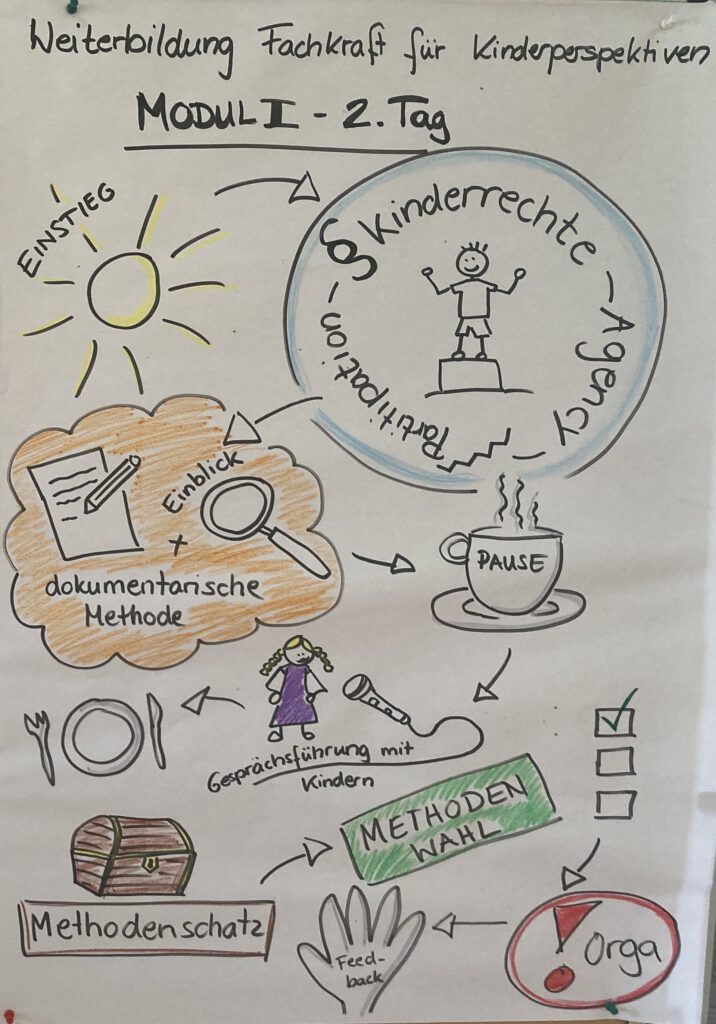 Weiterbildung Fachkraft für Kinderperspektiven
MODUL I - 2. Tag
EINSTIEG
§ Kinderrechte - Agency - Partitipation -
Einblick
+
dokumentarische
Methode
PAUSE
Gesprächsführung mit
Kindern
METHODEN
WAHL
Methodenschatz
! Orga
Feed-
back